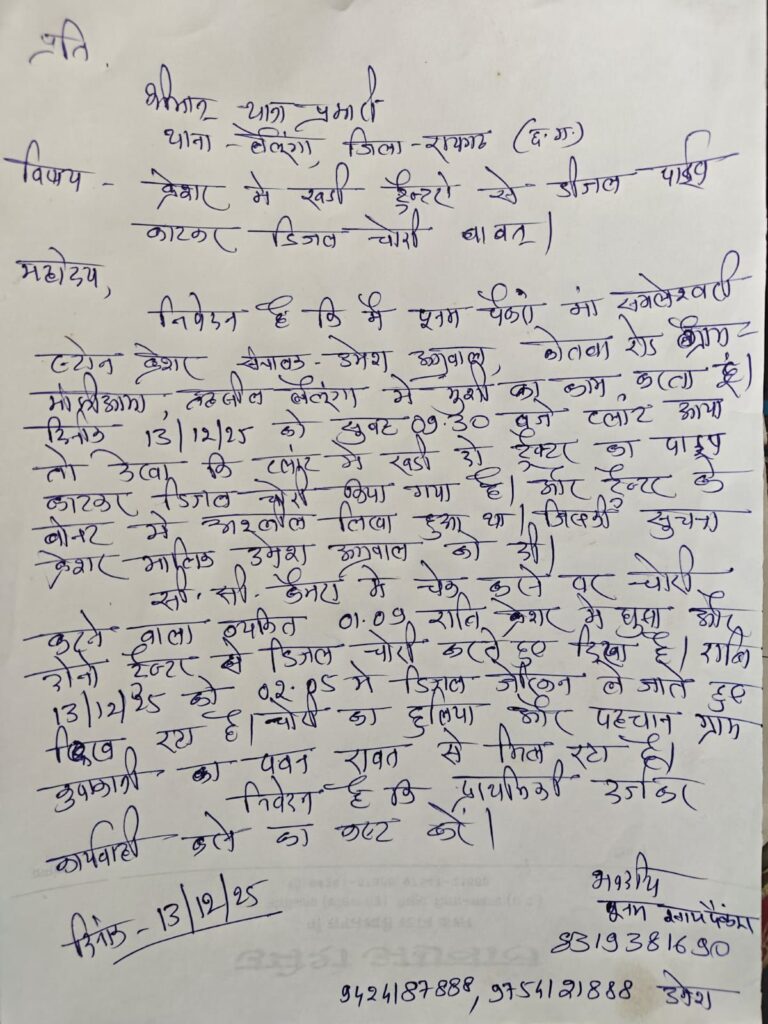 प्रति,
श्रीमान् थाना प्रभारी
थाना - लैलुंगा, जिला - रायगढ (छ.ग.)
विषय - क्रेशर मे खडी ट्रैक्टरो से डीजल पाईप
काटकर डिजल चोरी बावत्।
महोदय,
निवेदन है कि मै पूनम पैंकरा मां सम्लेश्वरी
स्टोन क्रेशर संचालक - उमेश अग्रवाल, कोतबा रोड ग्राम -
तहसील लैलुंगा मे मुंशी का काम करता हूं।
दिनांक 13/12/25 को सुबह 09:30 बजे प्लांट आया
तो देखा कि प्लांट मे खडी दो ट्रैक्टर का पाइप
काटकर डिजल चोरी किया गया है। और ट्रैक्टर के
बोनट मे अश्लील लिखा हुआ था। जिसकी सुचना
क्रेशर मालिक उमेश अग्रवाल को दी।
सी. सी. कैमरा मे चेक करने पर चोरी
करने वाला व्यक्ति 01.09 रात्रि क्रेशर मे घुसा और
दोनो ट्रैक्टर से डिजल चोरी करते हुए दिखा है। रात्रि
13/12/25 को 02.05 मे डिजल जरीकन ले जाते हुए
दिख रहा है। चोरी का हुलिया और पहचान ग्राम
का पवन रावत से मिल रहा है।
निवेदन है कि प्राथमिकी दर्ज कर
कार्यवाही करने का कष्ट करें।
दिनांक - 13/12/25
भवदीय
पूनम पैंकरा
8319381690
9424187888, 9754121888 उमेश